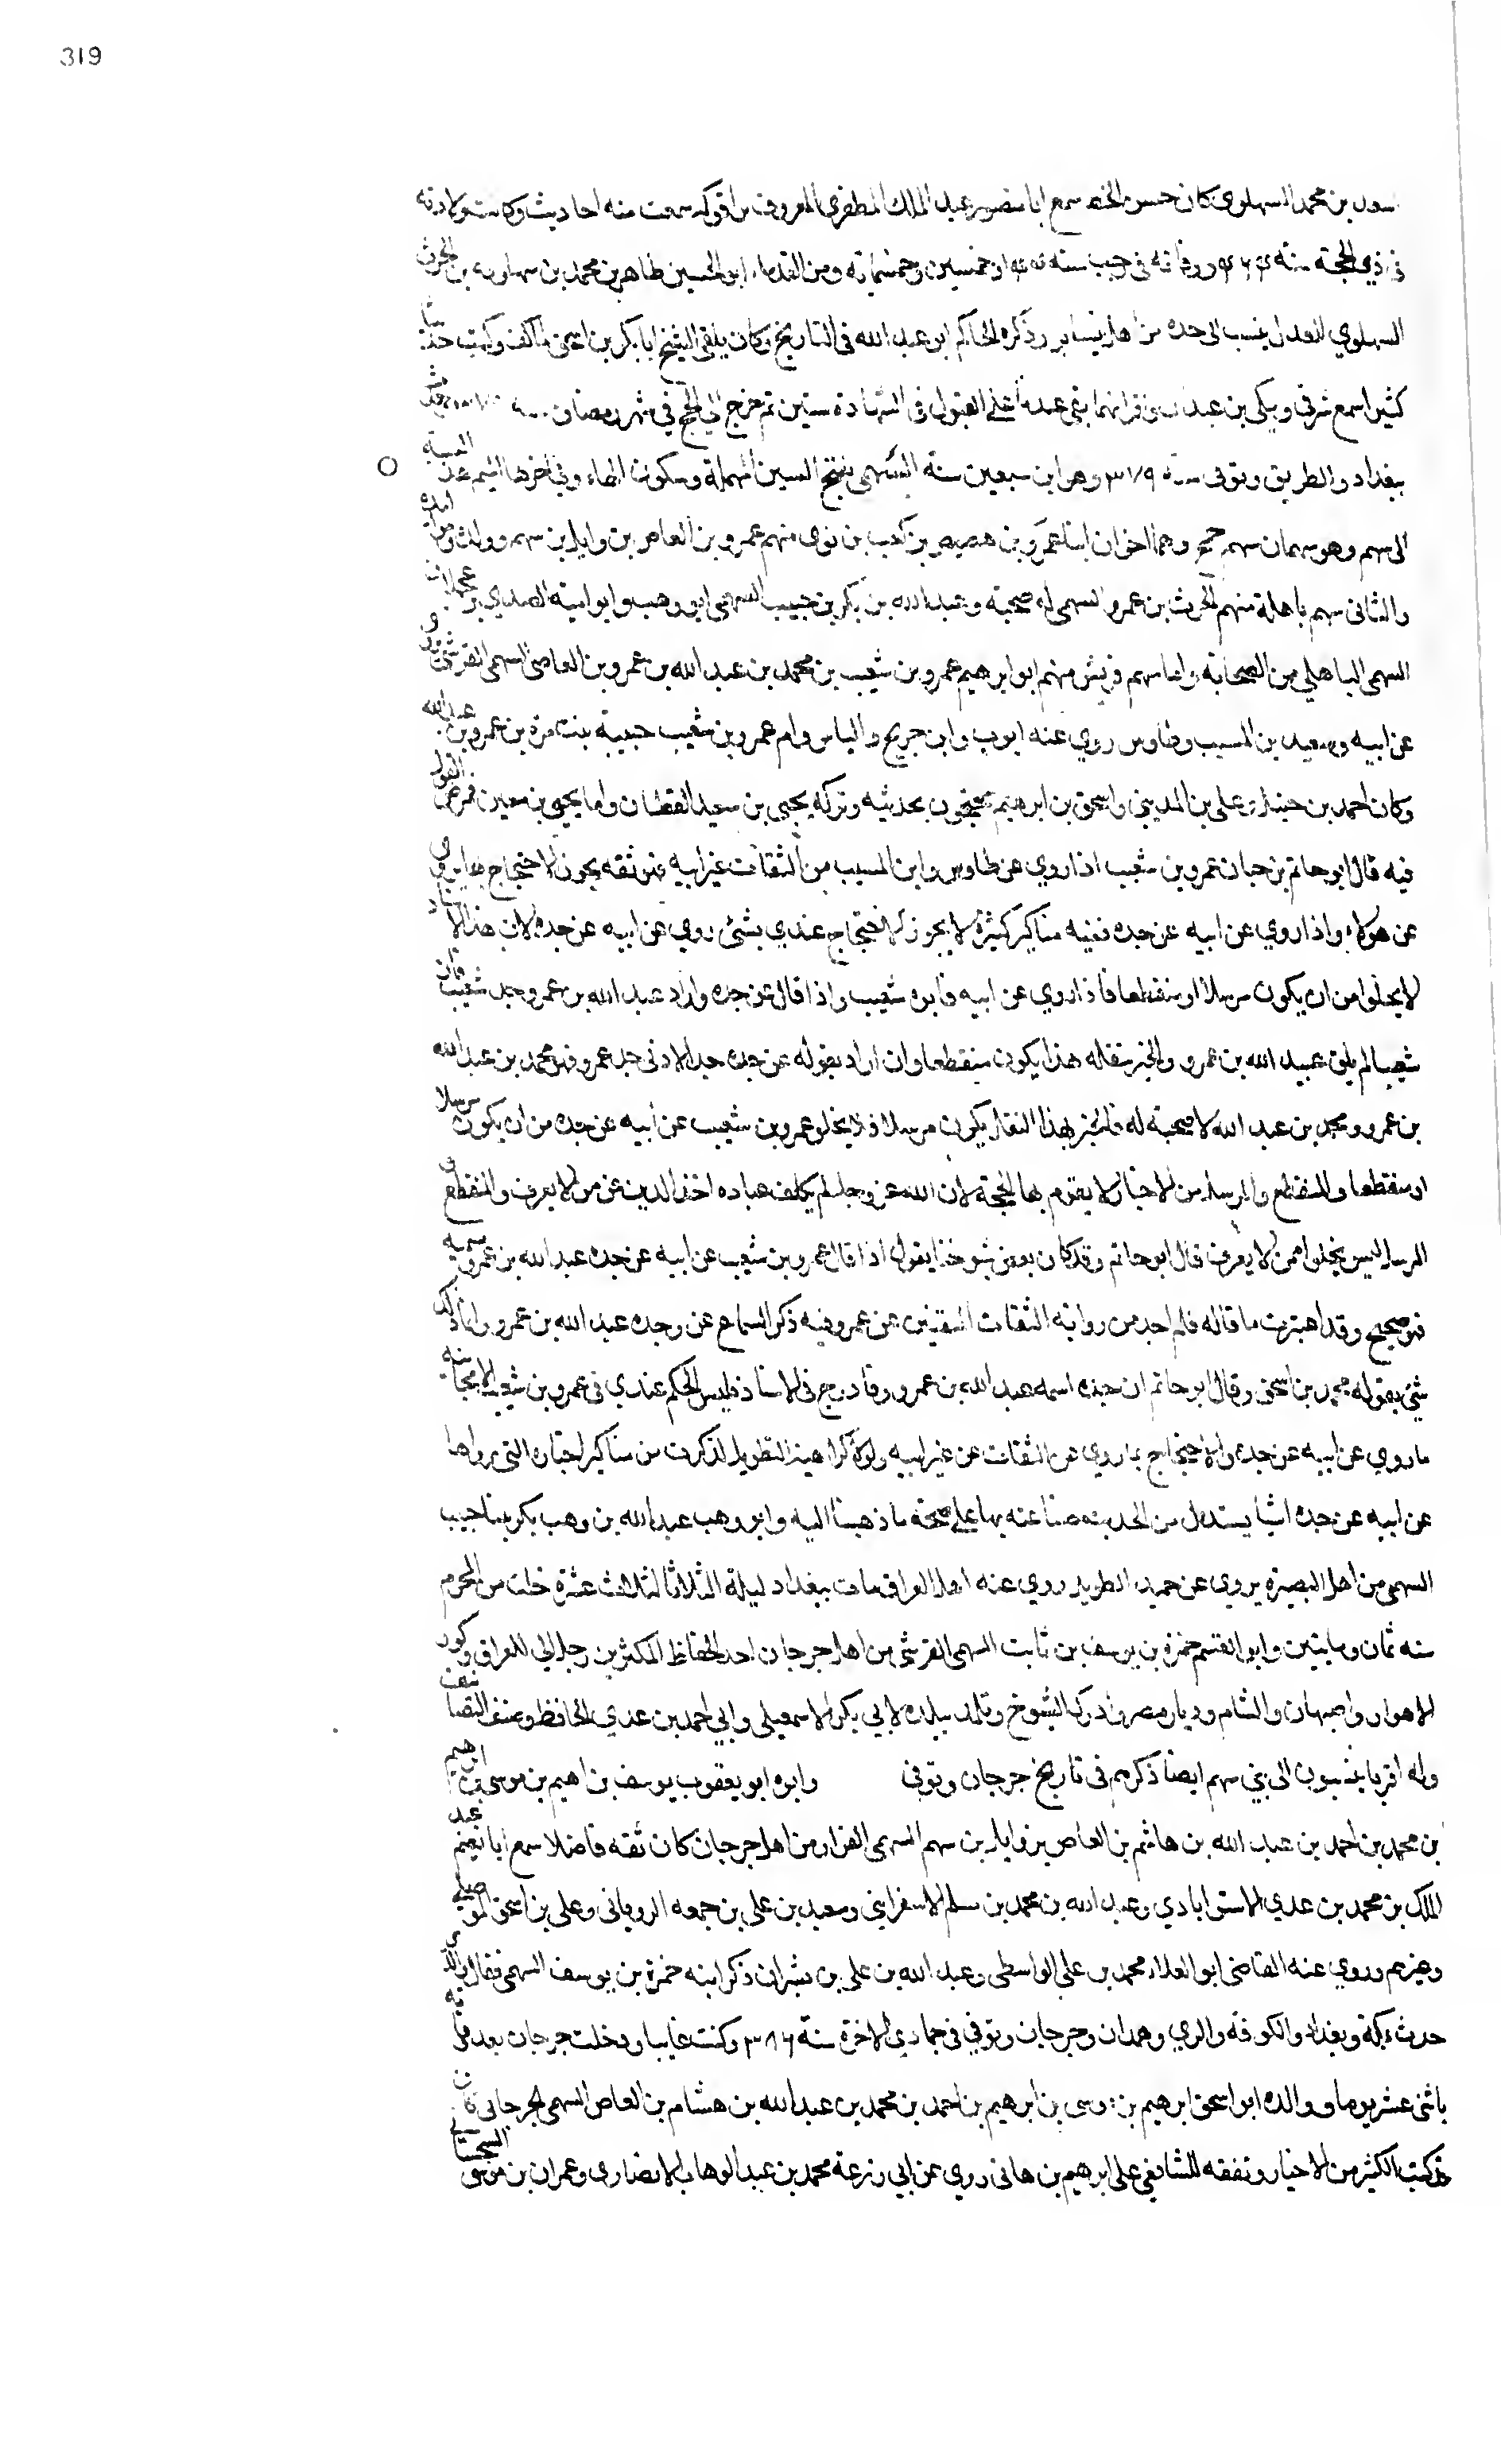 319
بن محمد السهلوي كان حسن الخط سمع ابا منصور عبد الملك المظفري المعروف سمعت منه احاديث وكانت ولادته
في ذي الحجة سنة ووفاته في رجب سنة خمسين وخمسمائه ومن القدماء ابو الحسين طاهر بن محمد بن سهلويه بن الحرث
السهلوي العدل ينسب الى جده من اهل نيسابور ذكره الحاكم ابو عبد الله في التاريخ وكان يلقى الشيخ ابا بكر بن اسحق
كثيرا سمع شرقي ومكي بن عبدان واقرانهما بقي عبد الله على القبول في الشهادة سنين ثم خرج الى الحج في شهر رمضان
ببغداد والطريق وتوفى سنة ٣٧٩ وهو ابن سبعين سنة السهمي بفتح السين المهملة وسكون الهاء وفي اخرها الميم هذه النسبة
الى سهم وهو سهمان سهم جمح وهما اخوان ابنا عمرو بن هصيص بن كعب بن لوى منهم عمرو بن العاص بن وايل بن سهم وولده
والثاني سهم باهلة منهم الحرث بن عمرو السهمي له صحبة وعبد الله بن بكر بن حبيب السهمي ابو وهب وابو امية الصدي بن عجلان
السهمي الباهلي من الصحابة واما سهم قريش منهم ابو ابرهيم عمرو بن شعيب بن محمد بن عبد الله بن عمرو بن العاص السهمي القرشي
عن ابيه وسعيد بن المسيب وطاوس روي عنه ايوب وابن جريج والناس وام عمرو بن شعيب حبيبة بنت مرة بن عمرو بن عبد الله
وكان احمد بن حنبل وعلي بن المديني واسحق بن ابرهيم يحتجون بحديثه وتركه يحيى بن سعيد القطان واما يحيى بن معين فمرض القول
فيه قال ابو حاتم بن حبان عمرو بن شعيب اذا روي عن طاوس وابن المسيب من الثقات غير ابيه فهو ثقة يجوز الاحتجاج بما يروى
عن هؤلاء واذا روي عن ابيه عن جده ففيه مناكير كثيرة لا يجوز الاحتجاج عندي بشئ روى عن ابيه عن جده لان هذا الاسناد
لا يخلوا من ان يكون مرسلا او منقطعا فاذا روي عن ابيه فابوه شعيب واذا قال عن جده واراد عبد الله بن عمرو جد شعيب فان
شعيبا لم يلق عبد الله بن عمرو والخبر بنقله هذا يكون منقطعا وان اراد بقوله عن جده جده الادنى جد عمرو فهو محمد بن عبد الله
بن عمرو ومحمد بن عبد الله لا صحبة له فالخبر بهذا النقل يكون مرسلا فلا يخلو عمرو بن شعيب عن ابيه عن جده من ان يكون مرسلا
او منقطعا والمنقطع والمرسل من الاخبار لا يقوم بها الحجة لان الله عز وجل لم يكلف عباده اخذ الدين عن من لا يعرف والمنقطع و
المرسل ليس يخلوا ممن لا يعرف قال ابو حاتم وقد كان بعض شيوخنا يقول اذا قال عمرو بن شعيب عن ابيه عن جده عبد الله بن عمرو يسميه
فهو صحيح وقد اعتبرت ما قاله فلم اجد من رواية الثقات المتقنين عن عمرو فيه ذكر السماع عن وجده عبد الله بن عمرو وانما ذلك
شئ يقوله محمد بن اسحق وقال ابو حاتم ان جده اسمه عبد الله بن عمرو وقد ادرج في الاسناد فليس الحكم عندي في عمرو بن شعيب الا مجانبة
ما روي عن ابيه عن جده والاحتجاج بما روي عن الثقات عن غير ابيه ولولا كراهية التطويل لذكرت من مناكير اخباره التي يرواها
عن ابيه عن جده يستدل من الحديث صناعته بها على صحة ما ذهبنا اليه وابو وهب عبد الله بن وهب بكر بن حبيب
السهمي من اهل البصرة يروي عن حميد الطويل روي عنه اهل العراق مات ببغداد ليلة الثلاثا لثلاث عشرة خلت من المحرم
سنه ثمان ومايتين وابو القسم حمزة بن يوسف بن ثابت السهمي القرشي من اهل جرجان احد الحفاظ المكثرين رحل الى العراق وكور
الاهواز واصبهان والشام وديار مصر وادرك الشيوخ وتلمذ ببلده لابي بكر الاسمعيلي وابي احمد بن عدي الحافظ وصنف التصانيف
وله اقربا ينسبون الى بني سهم ايضا ذكرهم في تاريخ جرجان وتوفى وابوه ابو يعقوب يوسف بن ابرهيم بن موسى بن ابرهيم
بن محمد بن احمد بن عبد الله بن هاشم بن العاص بن وايل بن سهم السهمي القزاز من اهل جرجان كان ثقة فاضلا سمع ابا نعيم عبد
الملك بن محمد بن عدي الاستراباذي وعبد الله بن محمد بن مسلم الاسفرايني وسعيد بن علي بن جمعه الروياني وعلي بن اسحق الموصلي
وغيرهم وروي عنه القاضي ابو العلاء محمد بن علي الواسطي وعبد الله بن علي بن بشران ذكر ابنه حمزة بن يوسف السهمي فقال والدي
حدث بمكة وبغداد والكوفه والري وهمدان وجرجان وتوفي في جمادي الاخرة سنة ٣٨٦ وكنت غايبا ودخلت جرجان بعد وفاته
باثنى عشر يوما ووالده ابو اسحق ابرهيم بن موسى بن ابرهيم بن احمد بن محمد بن عبد الله بن هشام بن العاص السهمي الجرجاني كان
قد كتب الكثير من الاخبار وتفقه للشافعي على ابرهيم بن هاني روي عن ابي زرعة محمد بن عبد الوهاب الانصاري وعمران بن موسى السجستاني